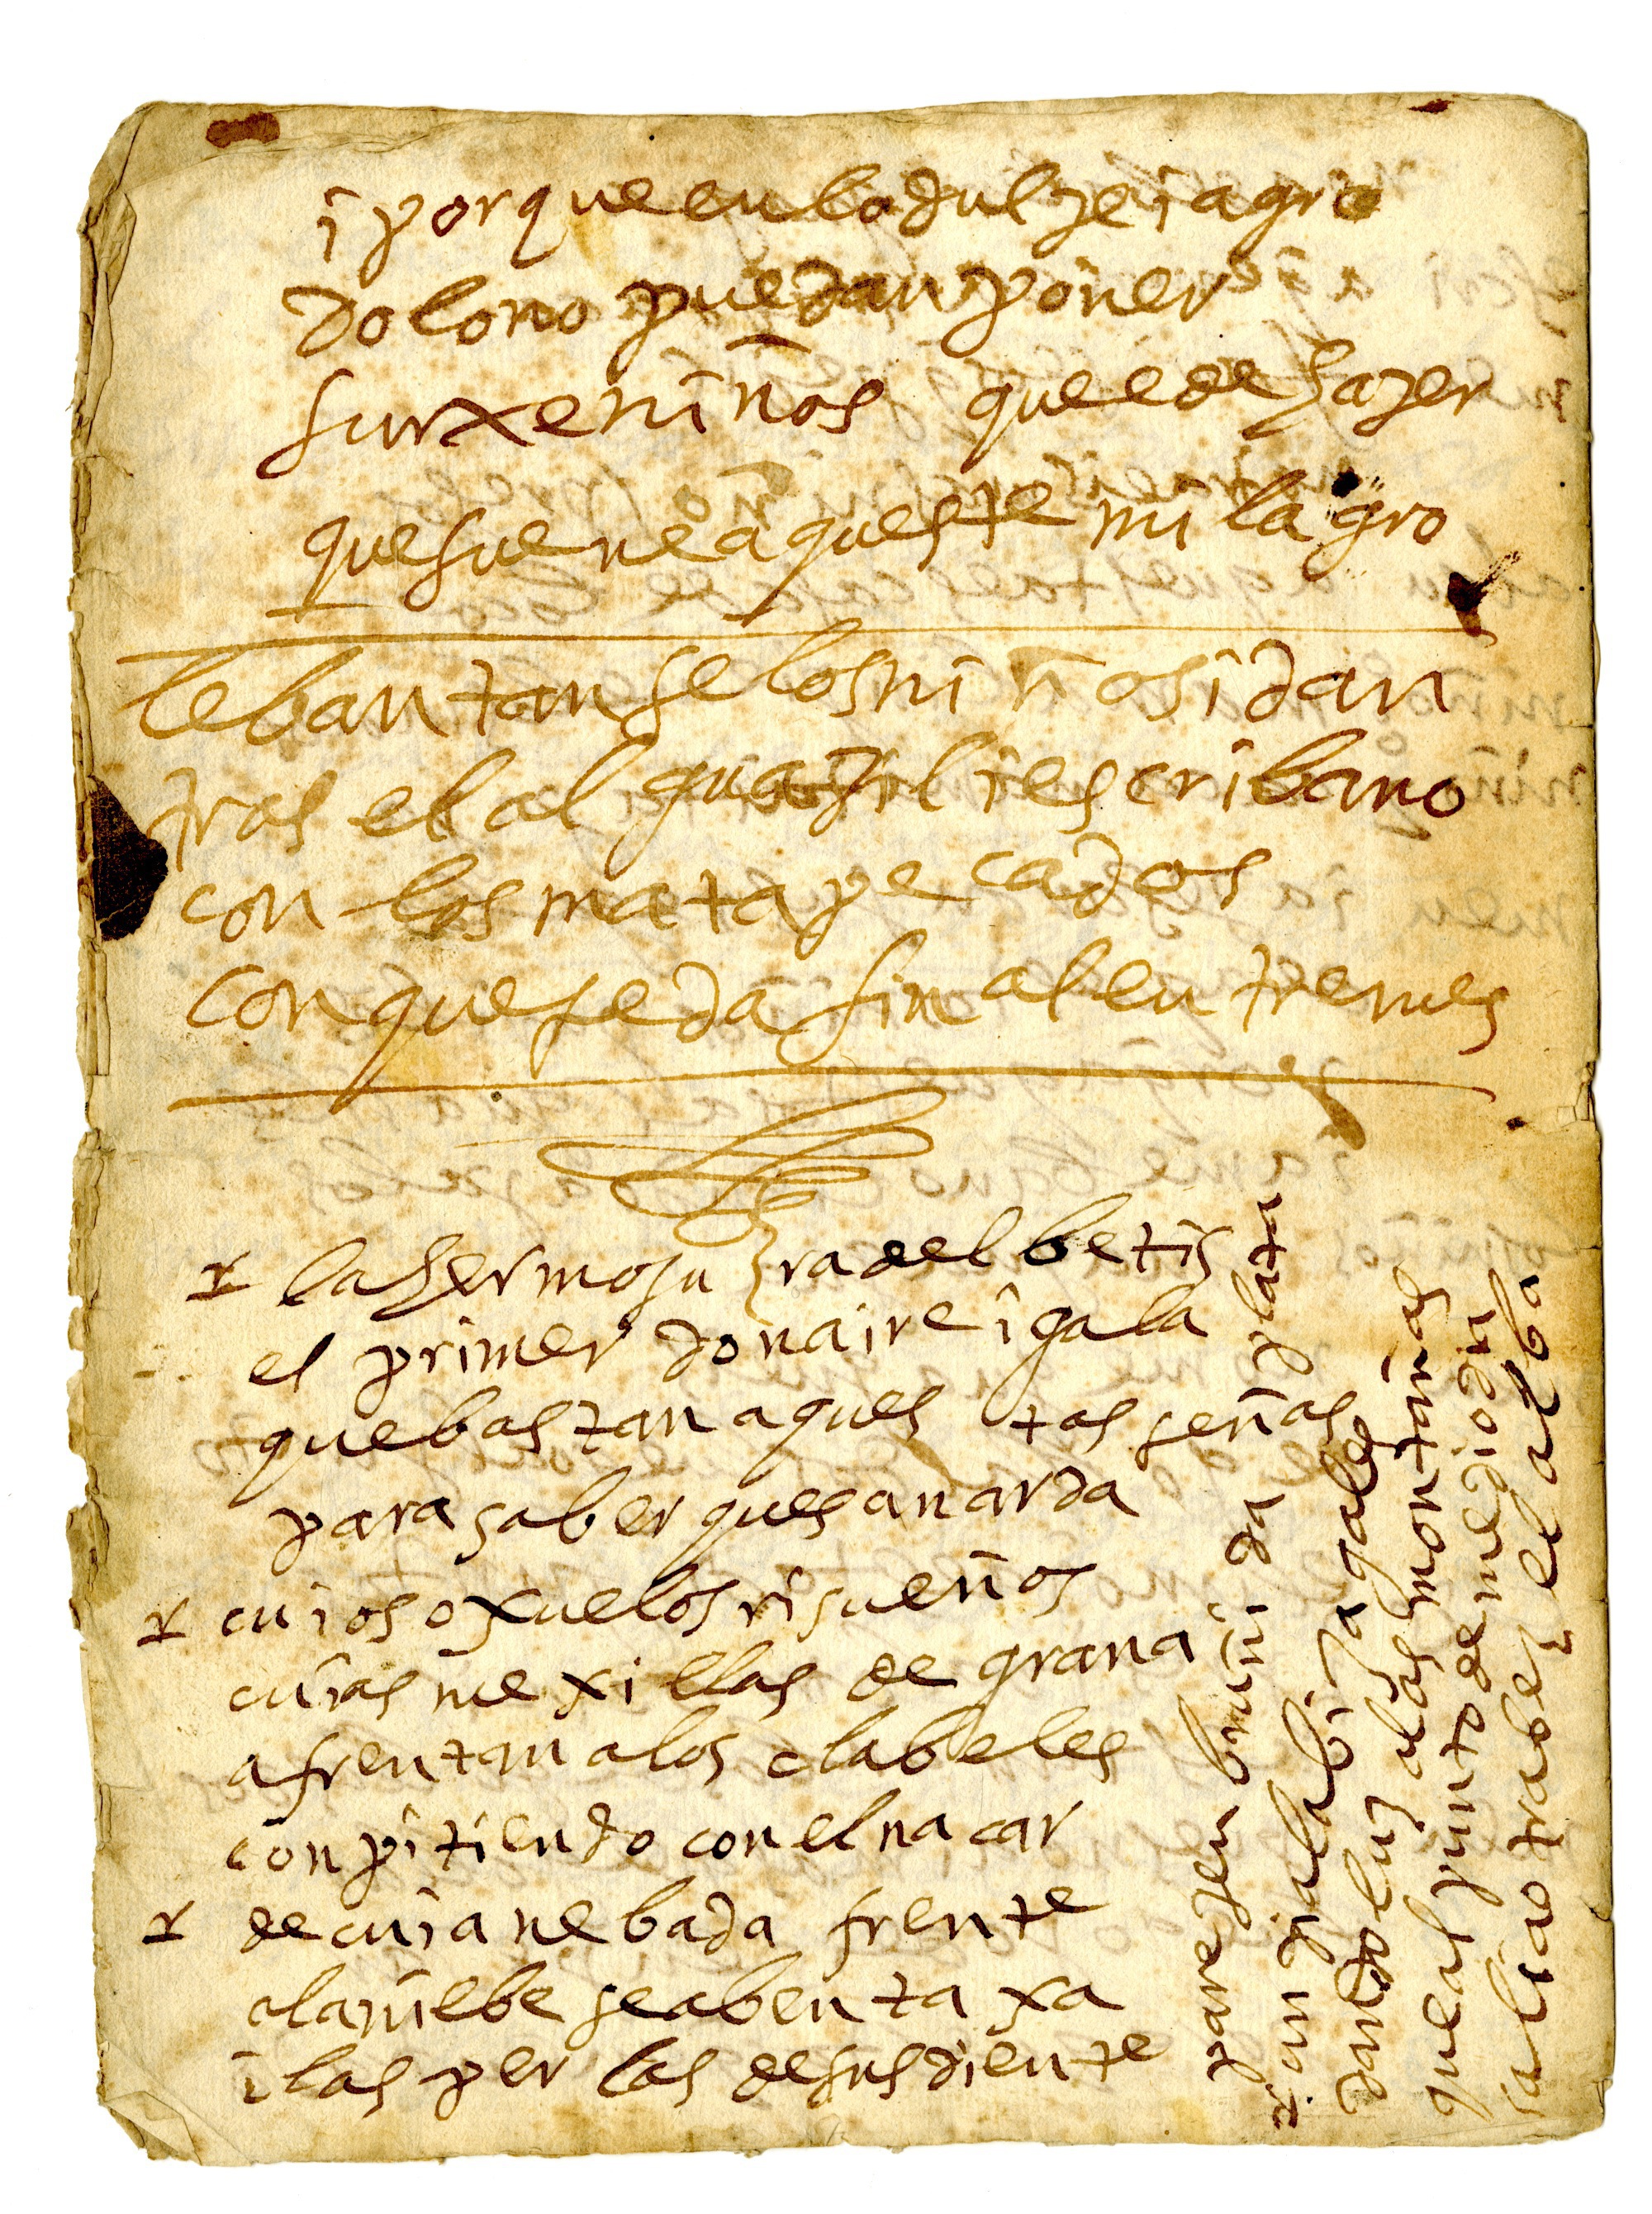 i porque en lo dulze i agrio
dolo no puedan poner
surxe niños que e de hazer
que suene aqueste milagro
lebantanse los niños i dan
tras el alguazil i escribano
con los matapecados
con que se da fin al entremes
la hermosura del betis
el primer donaire i gala
que bastan aquestas señas
para saber ques anarda
cuios oxuelos risueños
cuias mexillas de grana
afrentan a los clabeles
conpitiendo con el nacar
de cuia nebada frente
a la niebe se abentaxa
i las perlas de sus diente
parezen bruñida plata
un dia la bi zagales
dando luz a las montañas
que al punto de mediodia
salio otra bez el alba